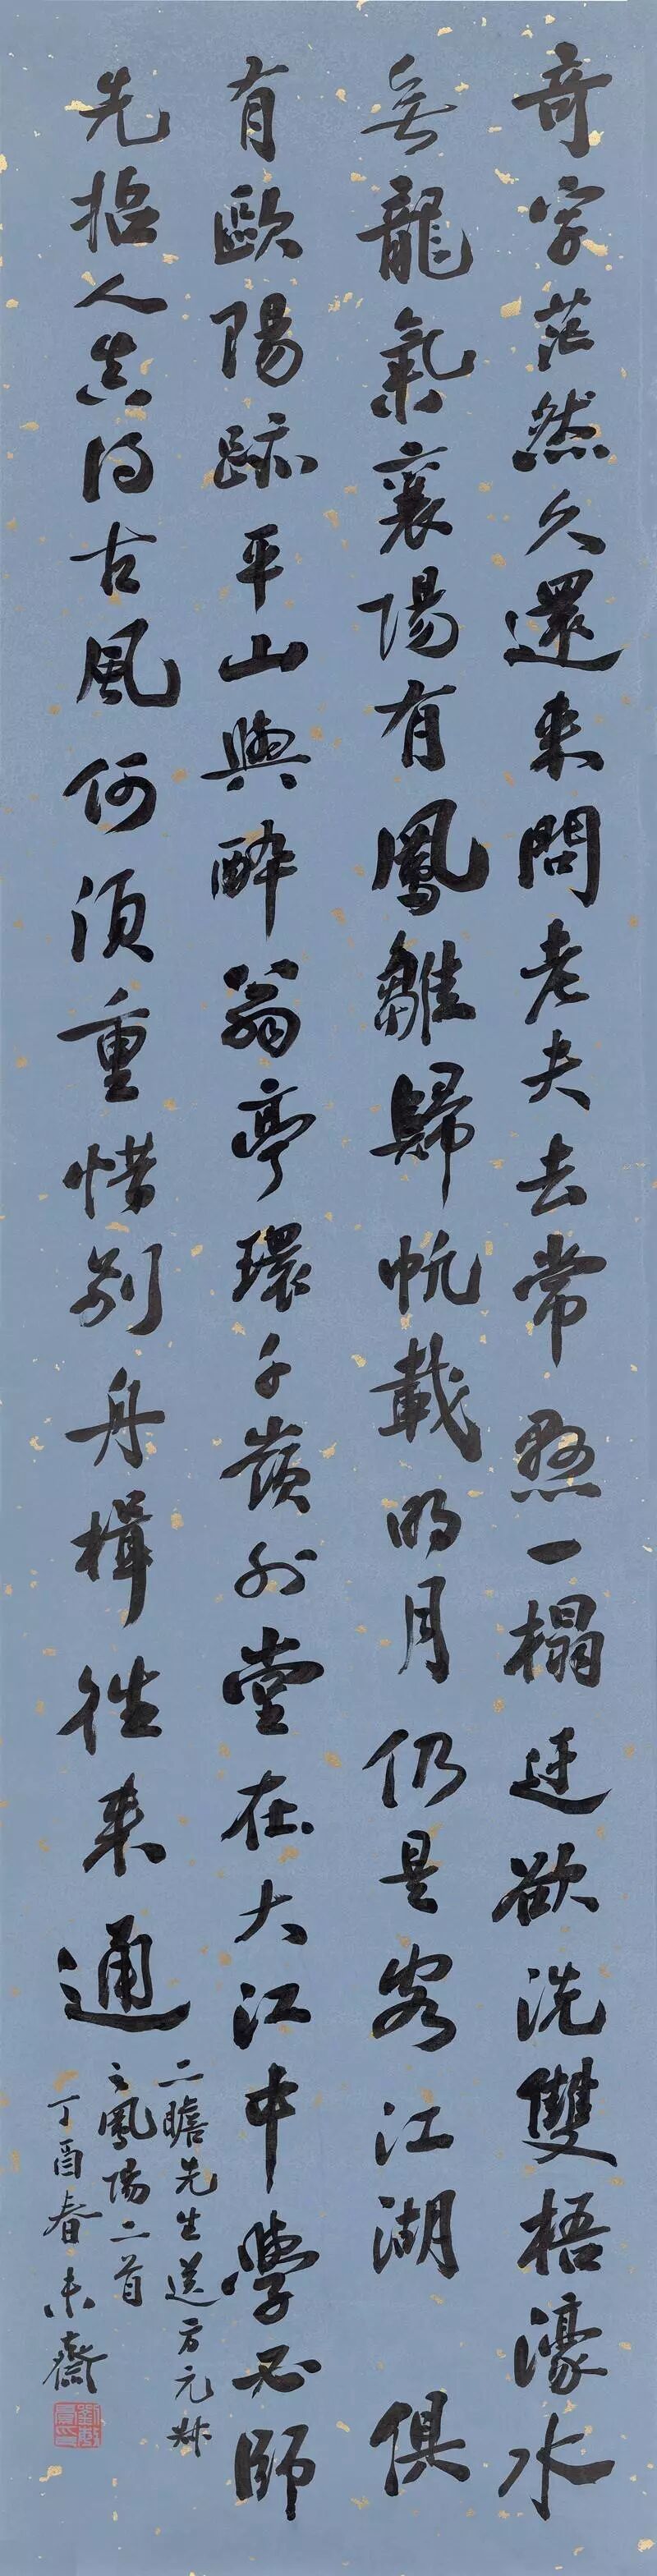 奇字茫然久還来問老夫去常懸一榻迂欲洗雙梧濠水
無龍氣襄陽有鳳雛歸帆載明月仍是客江湖俱
有歐陽跡平山與醉翁亭環千嶺外堂在大江中學必師
先梧人真得古風何須重惜别舟楫往来通
二瞻先生送方元
之鳳陽二首
丁酉春未齋